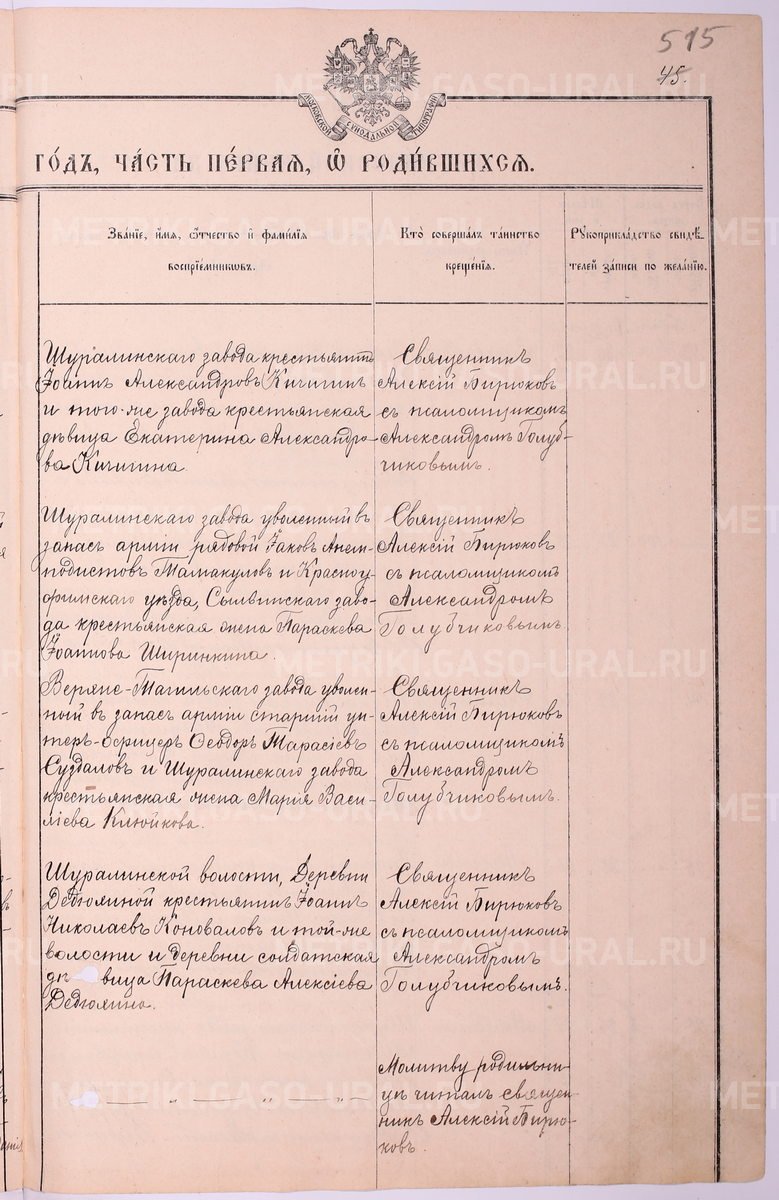 515
45.
МОСКОВСКОЙ СѴНОДАЛЬНОЙ ТИПОГРАФІИ
ГО́ДЪ, ЧА́СТЬ ПЕ́РВАЯ, Ѽ РОДИ́ВШИХСЯ.
Зва́нїе, и́мя, ѻ҆́тчество и҆ фами́лїя
воспрїе́мникѡвъ.
Кто̀ соверша́лъ та́инство
креще́нїя.
Рꙋкоприкла́дство свидѣ́-
телей за́писи по жела́нїю.
Шуралинскаго завода крестьянинъ
Іоаннъ Александровъ Кичигинъ
и того-же завода крестьянская
дѣвица Екатерина Александро-
ва Кичигина.
Священникъ
Алексій Бирюковъ
съ псаломщикомъ
Александромъ Голуб-
чиковымъ.
Шуралинскаго завода уволенный въ
запасъ арміи рядовой Іаковъ Анем-
подистовъ Тамакуловъ и Красноу-
фимскаго уѣзда, Сылвинскаго заво-
да крестьянская жена Параскева
Іоаннова Ширинкина.
Священникъ
Алексій Бирюковъ
съ псаломщикомъ
Александромъ
Голубчиковымъ.
Верхне-Тагильскаго завода уволен-
ный въ запасъ арміи старшій ун-
теръ-офицеръ Ѳеодоръ Тарасіевъ
Суздаловъ и Шуралинскаго завода
крестьянская жена Марія Васи-
ліева Клюйкова.
Священникъ
Алексій Бирюковъ
съ псаломщикомъ
Александромъ
Голубчиковымъ.
Шуралинской волости, Деревни
Дедюлиной крестьянинъ Іоаннъ
Николаевъ Коноваловъ и той-же
волости и деревни солдатская
дѣвица Параскева Алексіева
Дедюлина.
Священникъ
Алексій Бирюковъ
съ псаломщикомъ
Александромъ
Голубчиковымъ.
— „ — „ — „ —
Молитву родильни-
цѣ читалъ священ-
никъ Алексій Бирю-
ковъ.
METRIKI.GASO-URAL.RU